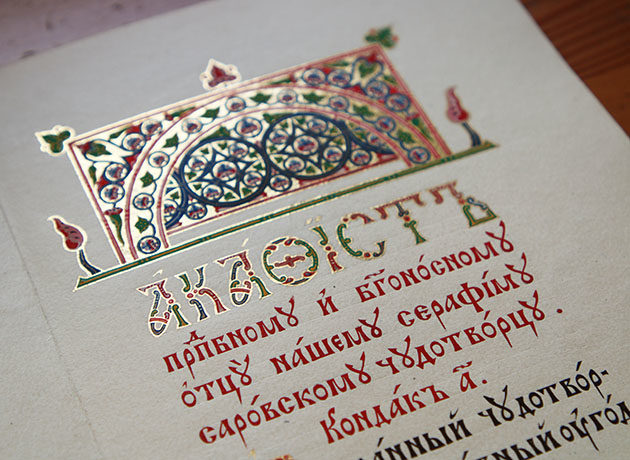 А҆КА́ѲЇСТЪ
прⷣпбномꙋ и҆ бг҃оно́сномꙋ
о҆тцꙋ̀ на́шемꙋ серафі́мꙋ
саро́вскомꙋ чꙋдотво́рцꙋ .
Конда́къ а҃.
анный чꙋдотво́р-
ный оу҆го́д